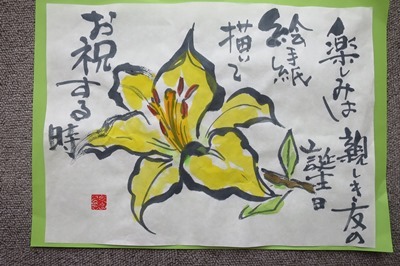 楽しみは
親しき友の
誕生日
絵手紙
描いて
お祝する時